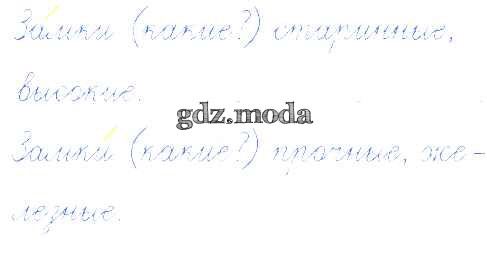 За́мки (какие?) старинные,
высокие.
gdz.moda
Замки́ (какие?) прочные, же-
лезные.